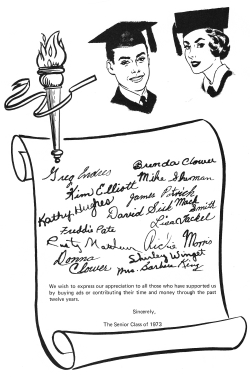 Greg Enders
Brenda Clower
Kim Elliott
Mike Sherman
Kathy Hughes
James Patrick
David Sisk
Mack Smith
Freddie Pate
Lisa Yackel
Rusty
Richie Morris
Donna Clower
Shirley Winget
Mrs. Barbara King
We wish to express our appreciation to all those who have supported us
by buying ads or contributing their time and money through the past
twelve years.
Sincerely,
The Senior Class of 1973